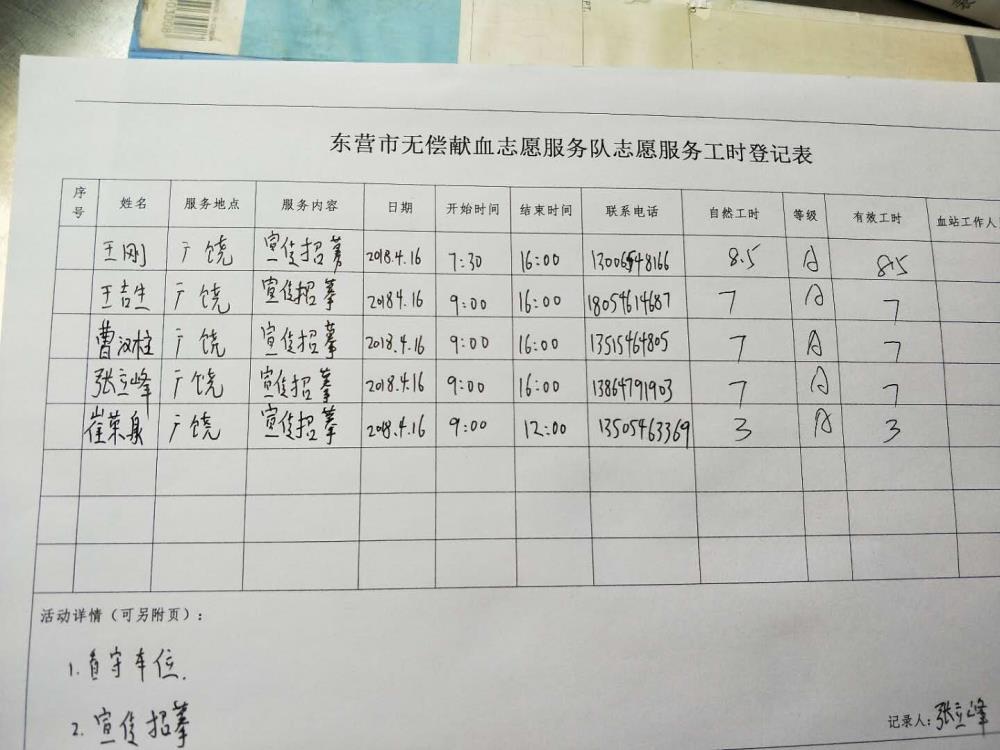 东营市无偿献血志愿服务队志愿服务工时登记表
序号 姓名 服务地点 服务内容 日期 开始时间 结束时间 联系电话 自然工时 等级 有效工时 血站工作人
王刚 广饶 宣传招募 2018.4.16 7:30 16:00 13006548166 8.5 A 8.5
王吉生 广饶 宣传招募 2018.4.16 9:00 16:00 18054614687 7 A 7
曹汉柱 广饶 宣传招募 2018.4.16 9:00 16:00 13515464805 7 A 7
张立峰 广饶 宣传招募 2018.4.16 9:00 16:00 13864791903 7 A 7
崔荣泉 广饶 宣传招募 2018.4.16 9:00 12:00 13505463369 3 A 3
活动详情（可另附页）：
1.看守车位.
2.宣传招募
记录人：张立峰